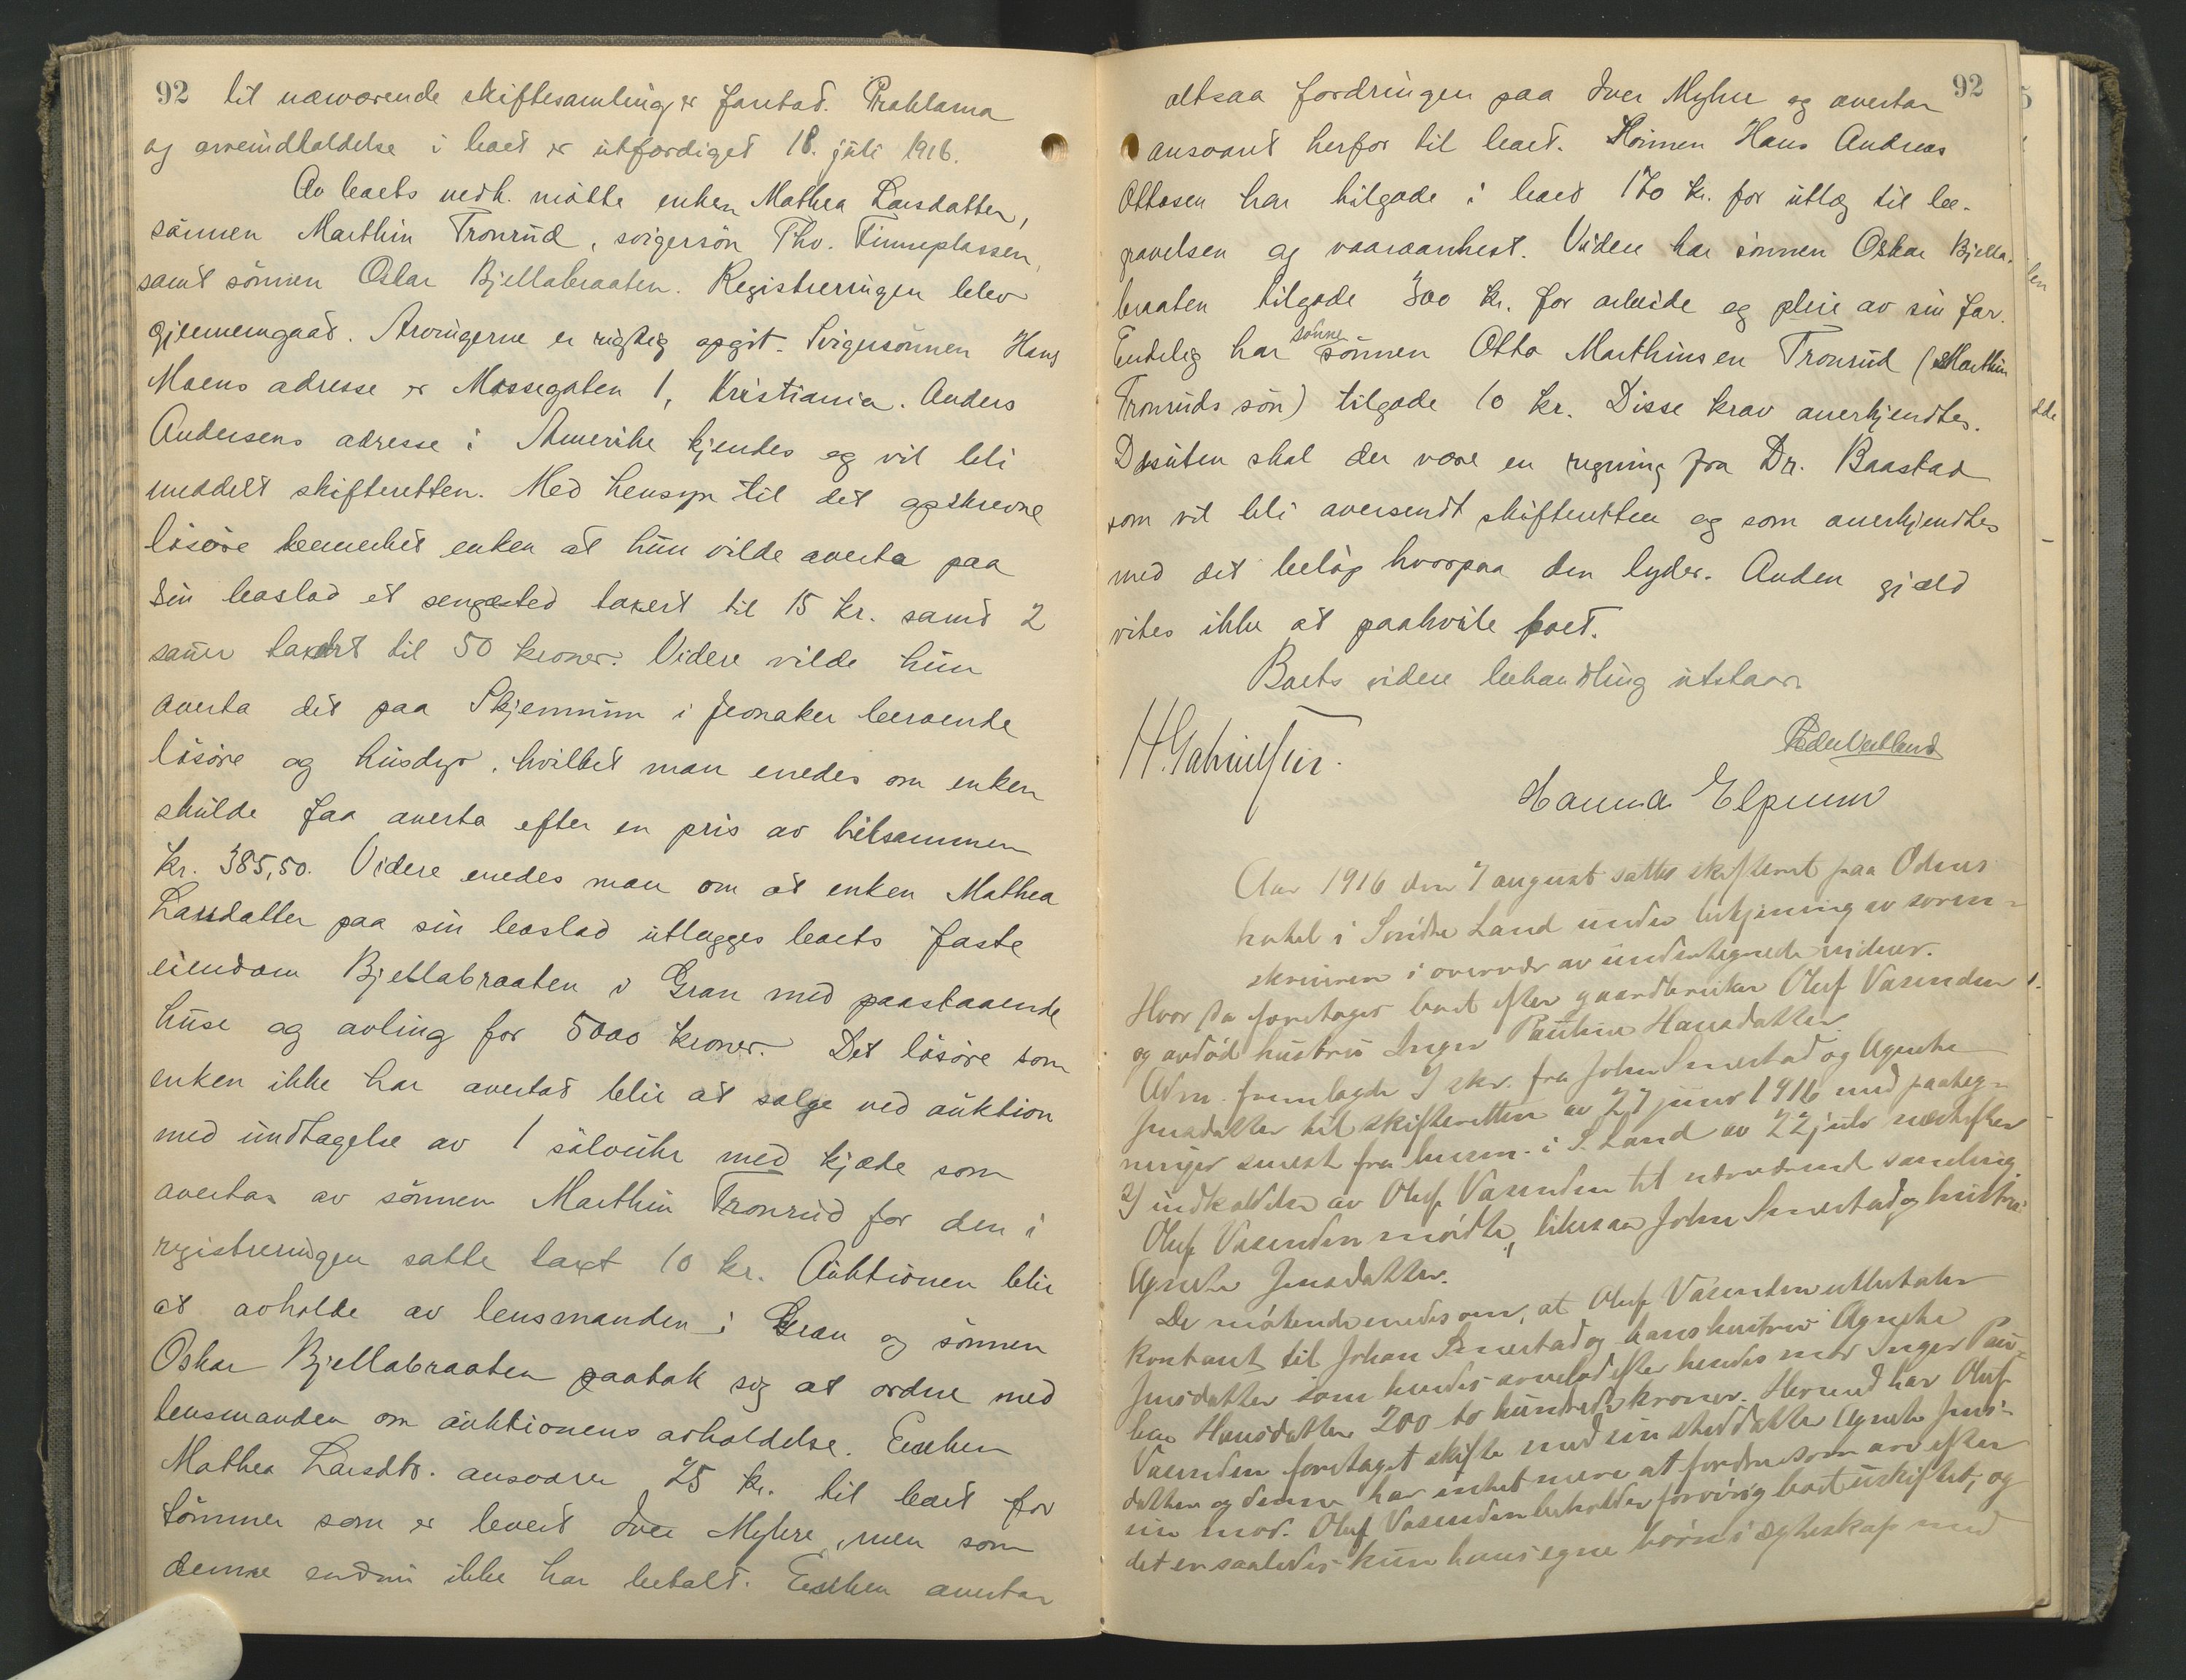 92 til nærværende skiftesamling er foretad. Proklama
og arveindkaldelse i boet er utfærdiget 18. juli 1916.
Av boets vedk. møtte enken Mathea Larsdatter,
sønnen Marthin Tronrud, svigersøn Thv. Finneplassen,
samt sønnen Oskar Bjellabraaten. Registreringen blev
gjennemgaad. Arvingerne er rigtig opgit. Svigersønnen Hans
Moens adresse er Mossegaten 1, Kristiania. Anders
Andersens adresse i Amerika kjendes og vil bli
meddelt skifteretten. Med hensyn til det opskrevne
løsøre bemerket enken at hun vilde averta paa
sin boslod et sengested taxert til 15 kr. samt 2
sauer taxert til 50 kroner. Videre vilde hun
averta det paa Skjennum i Jevnaker beroende
løsøre og husdyr, hvilket man enedes om enken
skulde faa averta efter en pris av tilsammen
kr. 385,50. Videre enedes man om at enken Mathea
Larsdatter paa sin boslod utlægges boets faste
eiendom Bjellabraaten i Gran med paastaaende
huse og avling for 5000 kroner. Det løsøre som
enken ikke har overtat blir at sælge ved auktion
med undtagelse av 1 sølvuhr med kjæde som
avertas av sønnen Marthin Tronrud for den i
registreringen satte taxt 10 kr. Auktionen blir
at avholde av lensmanden i Gran og sønnen
Oskar Bjellabraaten paatok sig at ordne med
lensmanden om auktionens avholdelse. Enken
Mathea Larsdtr. ansvarer 25 kr. til boet for
tømmer som er levert Iver Myhre, men som
denne endnu ikke har betalt. Enken avertar
92
altsaa fordringen paa Iver Myhre og avertar
ansvaret herfor til boet. Sønnen Hans Andreas
Ottosen har tilgode i boet 170 kr. for utlæg til be-
gravelsen og vaaraanhest. Videre har sønnen Oskar Bjella-
braaten tilgode 300 kr. for arbeide og pleie av sin far.
Endelig har sønne sønnen Otto Marthinsen Tronrud (Marthin
Tronruds søn) tilgode 10 kr. Disse krav anerkjendtes.
Desuten skal der være en regning fra Dr. Baastad
som vil bli oversendt skifteretten og som anerkjendtes
med det beløp hvorpaa den lyder. Anden gjæld
vites ikke at paahvile boet.
Boets videre behandling utstaar.
Hanna Elpnum
Aar 1916 den 7 august sattes skifteret paa Odnes
hotel i Søndre Land under betjening av soren-
skriveren i overvær av undertegnede vidner.
Hvor da foretages boet efter gaardbruker Oluf Vasenden
og avdød hustru Inger Pauline Hansdatter.
Adm. fremlagde 1) skr. fra Johan Smestad og Agnethe
Jensdatter til skifteretten av 27 juni 1916 med paateg-
ninger senest fra lensm. i S. Land av 22 juli næstefter
2) indkaldelse av Oluf Vasenden til nærværende samling.
Oluf Vasenden mødte, likesaa Johan Smestad og hustru
Agnethe Jensdatter.
De møtende enedes om, at Oluf Vasenden utbetaler
kontant til Johan Smestad og hans hustru Agnethe
Jensdatter som hendes arvelod efter hendes mor Inger Pau-
line Hansdatter 200 to hundrede kroner. Hermed har Oluf
Vasenden foretaget skifte med sin steddatter Agnethe Jens-
datter og denne har intet mere at fordre som arv efter
sin mor. Oluf Vasenden beholder forøvrig boet uskiftet, og
det er saaledes kun hans egne børn i egteskap med